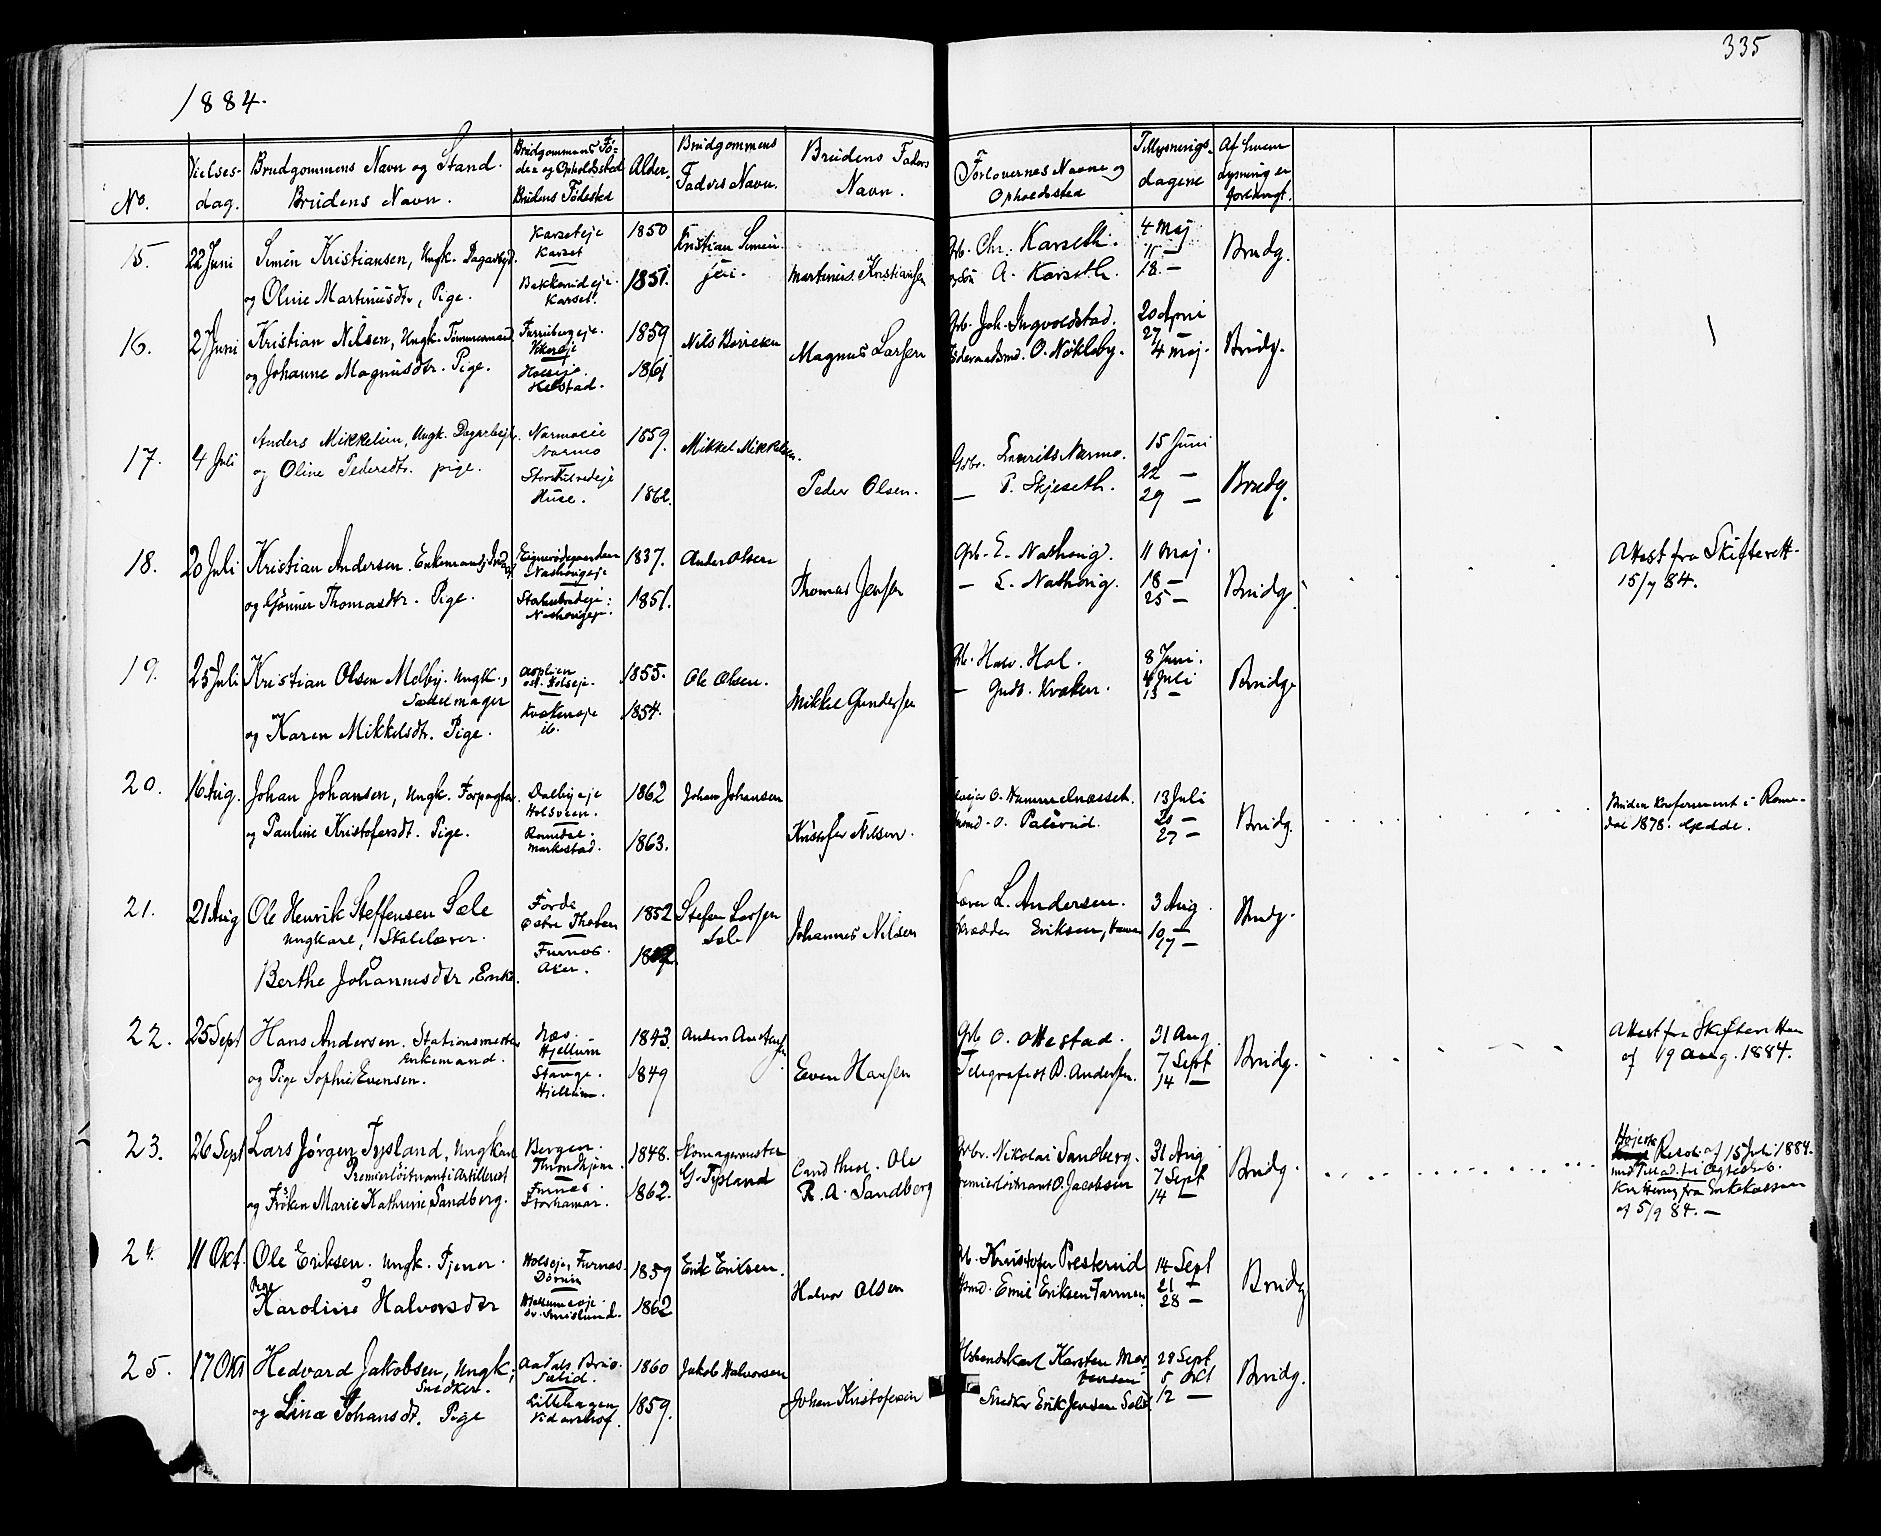 335
1884.
No.
Vielses-
dag.
Brudgommens Navn og Stand.
Brudens Navn.
Brudgommens Fö-
de og Opholdssted
Brudens Födested
Alder.
Brudgommens
Faders Navn.
Brudens Faders
Navn.
Forlovernes Navne og
Opholdssted
Tillysnings-
dagene
Af hvem
Lysning er
forlangt.
15. 22 Juni Simen Kristiansen, Ungk. Dagarbejd.
og Oline Martinusdtr, Pige.
Karseteje
Karset
Bakkerudeje
Karset.
1850
1851.
Kristian Simen-
sen.
Martinus Kristiansen
Grb. Chr. Karseth.
A. Karseth.
4 Maj
11 —
18. —
Brudg.
16. 27 Juni Kristian Nilsen, Ungk. Tömmermand
og Johanne Magnusdtr. Pige.
Furubergeje.
Vikereje
Holseje.
Helstad.
1859
1861
Nils
Magnus Larsen
Grb. Joh. Ingvoldstad.
O. Nökleby.
20 April
27 —
4 Maj.
Brudg.
17. 4 Juli Anders Mikkelsen, Ungk. Dagarbejd.
og Oline Pedersdtr. pige.
Narmoeie
Narmo
Storhilredeje
Huse.
1859.
1862.
Mikkel Mikkelsen.
Peder Olsen.
Gbr. Laurits Narmo.
— P. Skjeseth.
15 Juni
22 —
29 —
Brudg.
18. 20 Juli Kristian Andersen. Enkemand, Inds
og Gunner Thomasdtr. Pige.
Nashovgeje
Nashovgeje.
1837.
1851.
Anders Olsen
Thomas Jensen
Grb. E. Nashovig.
— L. Nashovig.
11 Maj.
18 —
25 —
Brudg.
Attest fra Skifterett.
15/7 84.
19. 25 Juli Kristian Olsen Melby. Ungk.,
Sadelmager
og Karen Mikkelsdtr. Pige.
Asplien
Holseje.
Kvakeneje
ib.
1855.
1854.
Ole Olsen.
Mikkel Gundersen
Gb. Halv. Hol.
— Gudb. Kvaken.
8 Juni.
6 Juli
13 —
Brudg.
20. 16 Aug. Johan Johansen, Ungk. Forpagter.
og Pauline Kristofersdt. Pige.
Dalbyeje
Holsveen.
Romedal.
Markestad.
1862
1863.
Johan Johansen
Kristofer Nilsen.
O. Hammelnæsset.
O. Palerud.
13 Juli
20 —
27 —
Brudg.
Bruden konfirmeret i Rome-
dal 1878. Gedde.
21. 21 Aug Ole Henrik Steffensen Sæle
Ungkarl, Skolelærer.
Berthe Johannesdtr, Enke.
Förde
Furnæs.
Aker.
1852
Stefen Larsen
Sæle
Johannes Nilsen
L. Andersen.
Skrædder Eriksen, Hamar
3 Aug.
10 —
17 —
Brudg.
22. 25 Sept Hans Andersen. Stationsmester
Enkemand.
og Pige Sophie Evensen.
Næs.
Hjellum
Stange.
Hjellum.
1843.
1849
Anders Andersen
Even Hansen
Grb. O. Ottestad.
Telegrafist D. Andersen.
31 Aug.
7 Sept
14 —
Brudg.
Attest fra Skifteretten
af 19 Aug. 1884.
23. 26 Sept Lars Jörgen Tysland, Ungkarl
Premierlöitnant i Artilleriet
og Fröken Marie Kathrine Sandberg.
Bergen.
Throndhjem.
Furnes.
Storhamar.
1848.
1862.
Skomagermester
G. Tysland
Cand. theol. Ole
R. A. Sandberg
Grbr. Nikolai Sandberg.
Premierlöitnant O. Jacobsen
31 Aug
7 Sept
14 —
Brudg.
Höjeste
Resol. af 15 Juli 1884.
med Tillad. til Ægtesk.
Kvittering fra Enkekassen
af 5/9 84. —
24. 11 Okt. Ole Eriksen. Ungk. Tjener.
Pige
Karoline Halvorsdtr
Holseje, Furnes.
Hjellumeje.
1859
1862
Erik Eriksen.
Halvor Olsen
Gb. Kristofer Presterud
Hsmd. Emil Eriksen
14 Sept
21 —
28 —
Brudg
25. 17 Okt Hedvard Jakobsen, Ungk.,
Snedker.
og Lina Johansdt. Pige
Aadals Brug.
Sælid.
Lillehagen
Vidarshof.
1860
1859.
Jakob Halvorsen
Johan Kristofersen
Karsten Mor-
tensen
Snedker Erik Jensen Sælid.
28 Sept
5 Oct
12 —
Brudg.